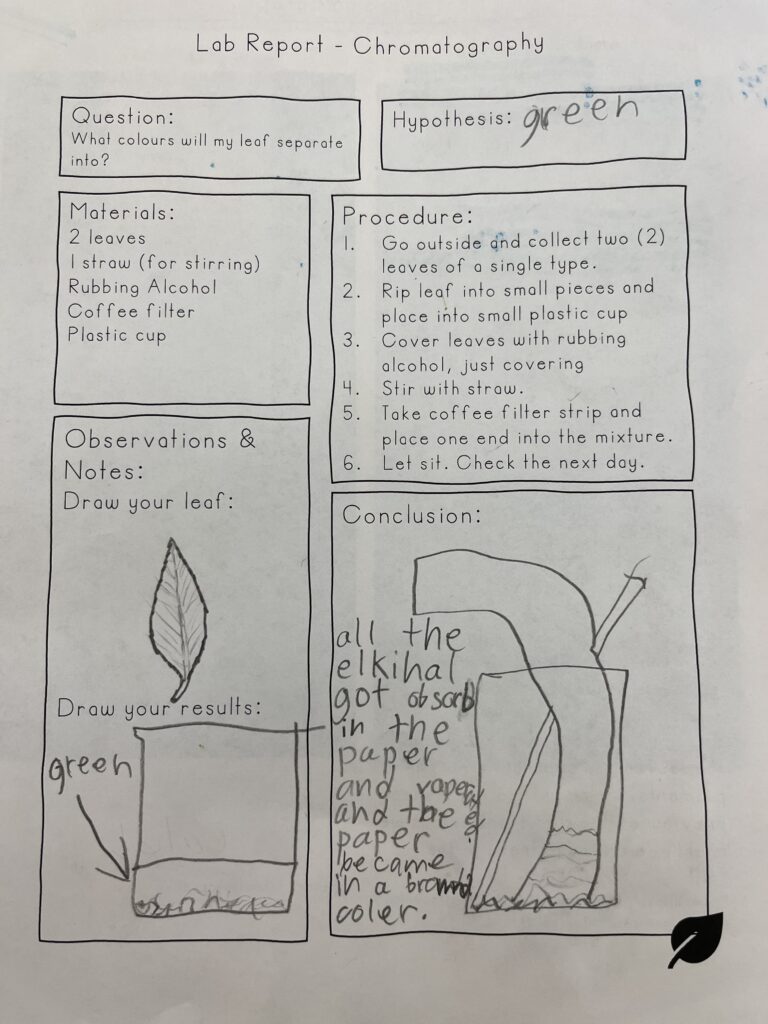 Lab Report - Chromatography
Question:
What colours will my leaf separate
into?
Hypothesis: green
Materials:
2 leaves
1 straw (for stirring)
Rubbing Alcohol
Coffee filter
Plastic cup
Procedure:
1. Go outside and collect two (2)
leaves of a single type.
2. Rip leaf into small pieces and
place into small plastic cup
3. Cover leaves with rubbing
alcohol, just covering
4. Stir with straw.
5. Take coffee filter strip and
place one end into the mixture.
6. Let sit. Check the next day.
Observations &
Notes:
Draw your leaf:
Draw your results:
green
Conclusion:
all the
elkihal
got absorb
in the
paper
and
and the
paper
became
in a
coler.